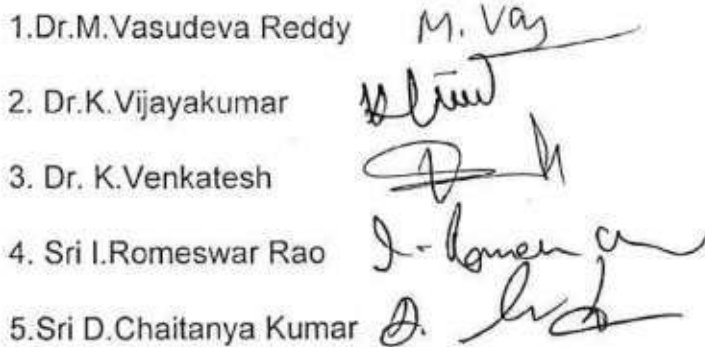 1.Dr.M.Vasudeva Reddy M. Vas
2. Dr.K.Vijayakumar
3. Dr. K.Venkatesh
4. Sri I.Romeswar Rao
5.Sri D.Chaitanya Kumar D.